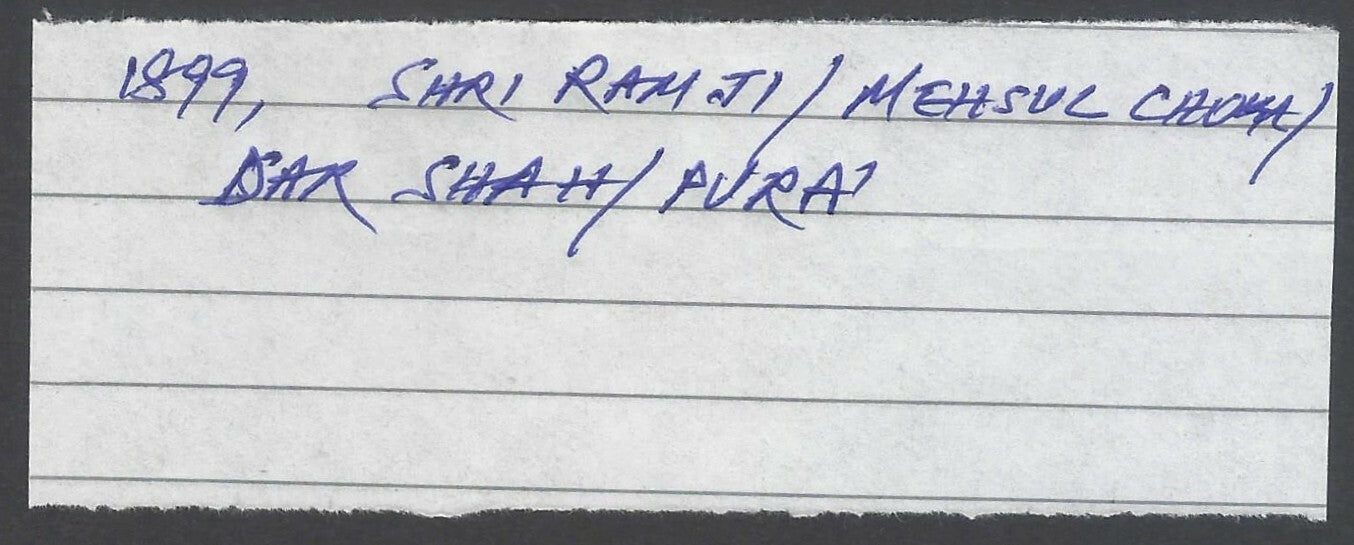 1899, SHRI RAMJI/ MEHSUL CHOKI/
DAR SHAH/ PURAI